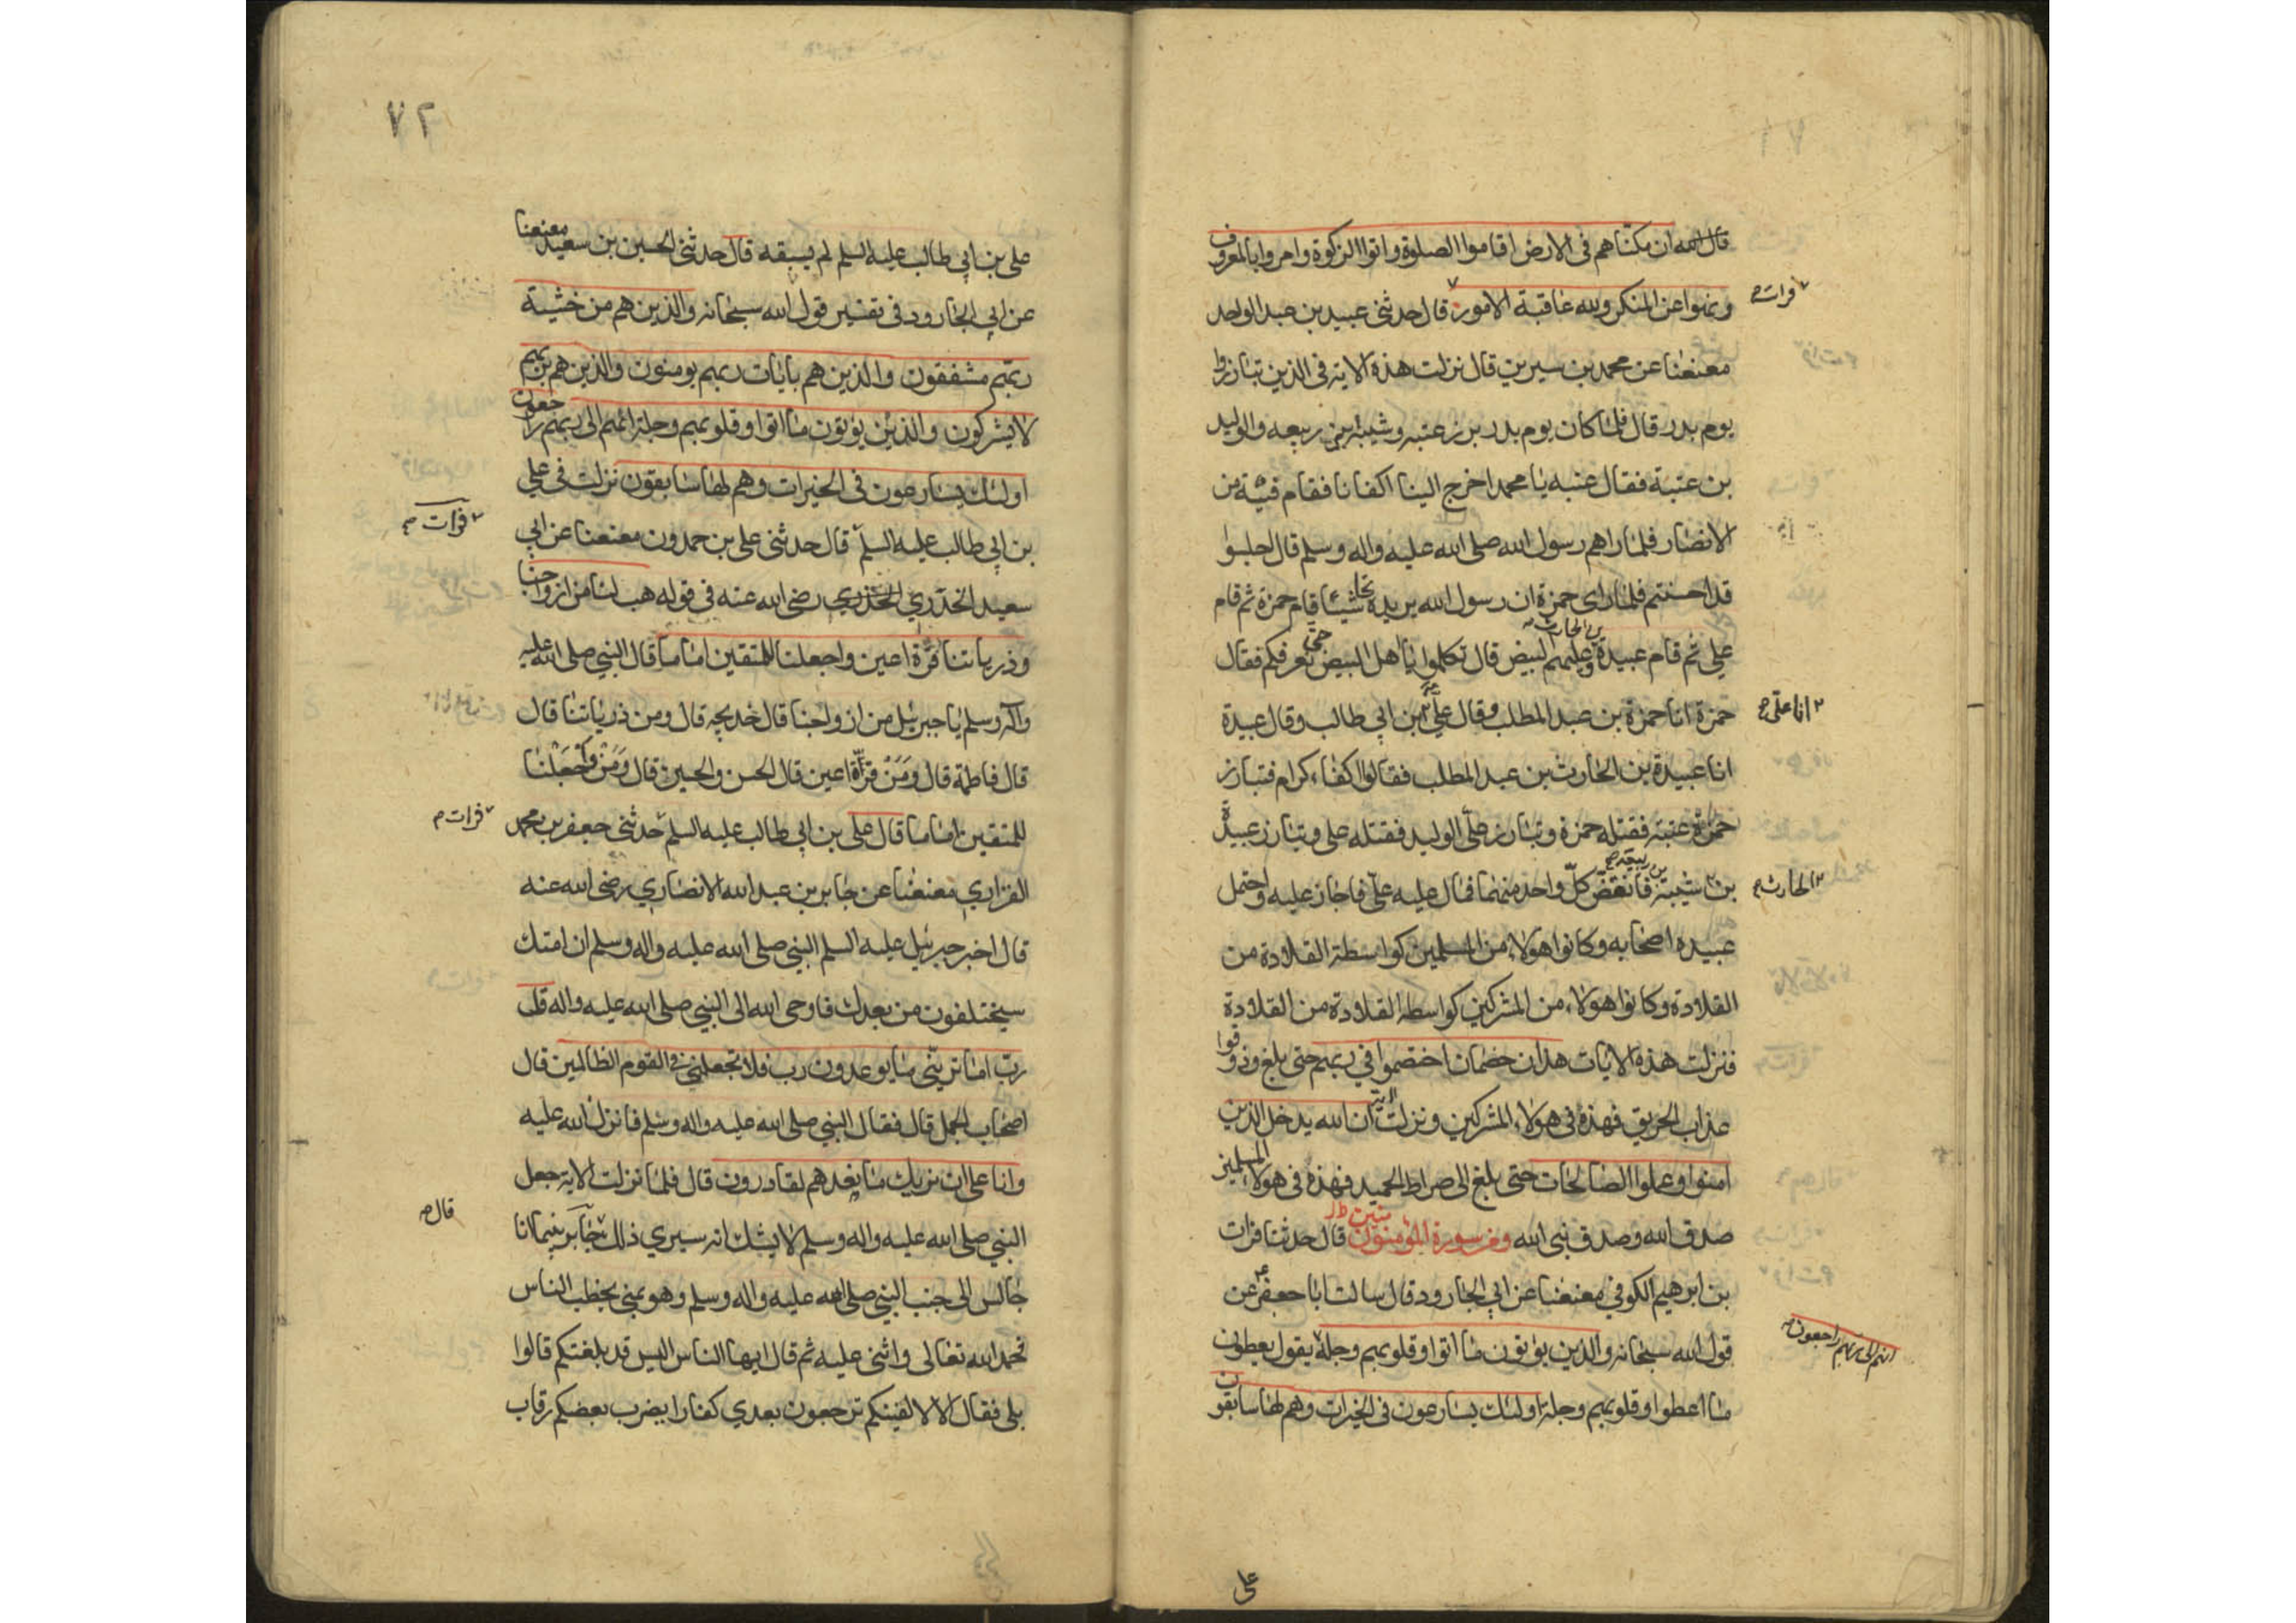 قال الله ان مكناهم فى الارض اقاموا الصلوة واتوا الزكوة وامروا بالمعروف
ونهوا عن المنكر ولله عاقبة الامور قال حدثنى عبيد بن عبد الواحد
فرات
معنعنا عن محمد بن سيرين قال نزلت هذه الاية فى الذين تبارزوا
يوم بدر قال فلما كان يوم بدر برز عتبه وشيبة ابنى ربيعه والوليد
بن عتبة فقال عتبه يا محمد اخرج الينا اكفانا فقام فتية من
الانصار فلما راهم رسول الله صلى الله عليه واله وسلم قال اجلسوا
قد احسنتم فلما راى حمزة ان رسول الله يريده شيئا قام حمزة ثم قام
على ثم قام عبيدة بن الحارث وعليهم البيض قال تكلموا يا اهل البيض حتى نعرفكم فقال
حمزة انا حمزة بن عبد المطلب وقال على بن ابي طالب وقال عبيدة
انا على
انا عبيدة بن الحارث بن عبد المطلب فقالوا اكفاء كرام فتبارز
حمزة عتبه فقتله حمزة وتبارز على الوليد فقتله على وتبارز عبيدة
بن شيبة بن ربيعه كل واحد منهما فمال عليه على فاجاز عليه واحتمل
الحارث
عبيده اصحابه وكانوا هولاء من المسلمين كواسطة القلادة من
القلادة وكانوا هولاء من المشركين كواسطه القلادة من القلادة
فنزلت هذه الايات هذان خصمان اختصموا في ربهم حتى بلغ وذوقوا
عذاب الحريق فهذه فى هولاء المشركين ونزلت الاية ان الله يدخل الذين
امنوا وعملوا الصالحات حتى بلغ الى صراط الحميد فهذه فى هولاء المسلمين
صدق الله وصدق نبى الله ومن سورة المؤمنون قال حدثنا فرات
بن ابرهيم الكوفي معنعنا عن ابي الجارود قال سالت ابا جعفر عن
قول الله سبحانه والذين يؤتون ما اتوا وقلوبهم وجلة يقول يعطون
انهم الى ربهم راجعون
ما اعطوا وقلوبهم وجلة اولئك يسارعون فى الخيرات وهم لها سابقون
على
٧٢
على بن ابي طالب عليه السلم لم يسبقه قال حدثنى الحسين بن سعيد معنعنا
عن ابي الجارود فى تفسير قول الله سبحانه والذين هم من خشية
ربهم مشفقون والذين هم بايات ربهم يومنون والذين هم بربهم
لا يشركون والذين يؤتون ما اتوا وقلوبهم وجلة انهم الى ربهم راجعون
اولئك يسارعون فى الخيرات وهم لها سابقون نزلت فى على
بن ابي طالب عليه السلم قال حدثنى على بن حمدون معنعنا عن ابي
فرات
سعيد الخدري الخدري رضى الله عنه فى قوله هب لنا من ازواجنا
وذرياتنا قرة اعين واجعلنا للمتقين اماما قال النبي صلى الله عليه
وآله وسلم يا جبرئيل من ازواجنا قال خديجه قال ومن ذرياتنا قال
قال فاطمة قال ومن قرة اعين قال الحسن والحسين قال ومن واجعلنا
للمتقين اماما قال على بن ابي طالب عليه السلم حدثنى جعفر بن محمد
فرات
الفزاري معنعنا عن جابر بن عبد الله الانصاري رضى الله عنه
قال اخبر جبرئيل عليه السلم النبي صلى الله عليه واله وسلم ان امتك
سيختلفون من بعدك فاوحى الله الى النبي صلى الله عليه واله قل
رب اما تريني ما يوعدون رب فلا تجعلني فى القوم الظالمين قال
اصحاب الجمل قال فقال النبي صلى الله عليه واله وسلم فانزل الله عليه
وانا على ان نريك ما نعدهم لقادرون قال فلما نزلت الاية جعل
النبي صلى الله عليه واله وسلم لا يشك انه سيري ذلك جابر بينما انا
قال
جالس الى جنب النبي صلى الله عليه واله وسلم وهو بمنى يخطب الناس
فحمد الله تعالى واثنى عليه ثم قال ايها الناس اليس قد بلغتكم قالوا
بلى فقال الا لا الفينكم ترجعون بعدي كفارا يضرب بعضكم رقاب